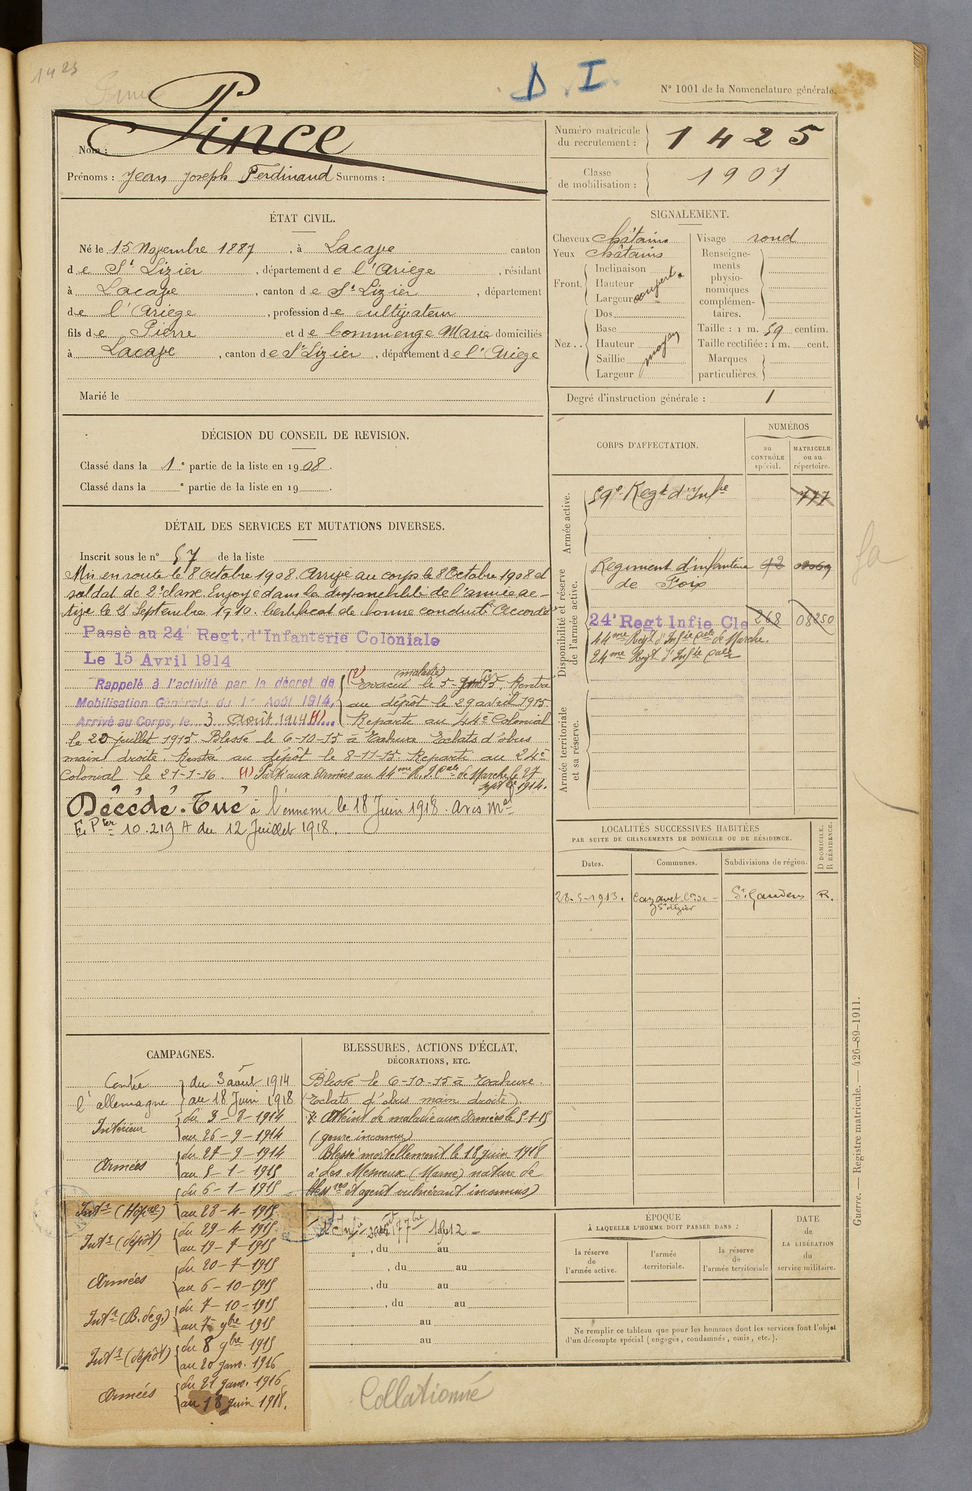 1425
D. I.
N° 1001 de la Nomenclature générale.
Nom : Pince
Prénoms : Jean Joseph Ferdinand Surnoms :
Numéro matricule du recrutement : 1425
Classe de mobilisation : 1907
ÉTAT CIVIL.
Né le 15 Novembre 1887, à Lacave canton
de St Lizier, département de l'Ariège, résidant
à Lacave, canton de St Lizier, département
de l'Ariège, profession de cultivateur
fils de Pierre et de Commenge Marie domiciliés
à Lacave, canton de St Lizier, département de l'Ariège
Marié le
SIGNALEMENT.
Cheveux châtains
Yeux châtains
Front. Inclinaison
Hauteur
Largeur
couvert
Nez.. Dos
Base
Hauteur
Saillie
Largeur
moyen
Visage rond
Renseignements physionomiques complémentaires.
Taille : 1 m. 59 centim.
Taille rectifiée : 1 m. cent.
Marques particulières.
Degré d'instruction générale : 1
DÉCISION DU CONSEIL DE REVISION.
Classé dans la 1e partie de la liste en 1908.
Classé dans la e partie de la liste en 19
DÉTAIL DES SERVICES ET MUTATIONS DIVERSES.
Inscrit sous le n° 57 de la liste
Mis en route le 8 Octobre 1908. Arrivé au corps le 8 Octobre 1908 et
soldat de 2e classe. Envoyé dans la disponibilité de l'armée ac-
tive le 25 Septembre 1910. Certificat de bonne conduite Accordé
Passé au 24e Regt. d'Infanterie Coloniale
Le 15 Avril 1914
Rappelé à l'activité par le décret de
Mobilisation Générale du 1er Août 1914,
Arrivé au Corps, le 3 Août 1914 (1)
(2) Evacué (malade) le 5-1-15. Rentré
au dépôt le 29 avril 1915.
Reparti au 44e Colonial
le 20 juillet 1915. Blessé le 6-10-15 à Tahure Eclats d'obus
main droite. Rentré au dépôt le 8-11-15. Reparti au 24e
Colonial le 21-1-16. (1) Parti aux armées au 44me R. I. Cale de Marche le 27
Septbre 1914.
Décédé. Tué à l'ennemi le 18 Juin 1918. Avis Mel
E. Pter 10.219 A du 12 Juillet 1918.
CORPS D'AFFECTATION.
NUMÉROS
au CONTRÔLE spécial.
MATRICULE ou au répertoire.
Armée active.
59e Regt d'Infie 777
Disponibilité et réserve de l'armée active.
Régiment d'infanterie
de Foix
24e Regt Infie Cle 268 08250
44me Regt d'Infie Cale de Marche.
24me Regt d'Infie Cale
Armée territoriale et sa réserve.
LOCALITÉS SUCCESSIVES HABITÉES
PAR SUITE DE CHANGEMENTS DE DOMICILE OU DE RÉSIDENCE.
Dates. Communes. Subdivisions de région. D DOMICILE. R RÉSIDENCE.
28-5-1913. St Lizier St Gaudens R.
CAMPAGNES.
Contre l'Allemagne du 3 août 1914
au 18 Juin 1918
Intérieur du 3-8-1914
au 26-9-1914
Armées du 27-9-1914
au 5-1-1915
du 6-1-1915
Intr (Hopal) au 28-4-1915
Intr (dépôt) du 29-4-1915
au 19-7-1915
Armées du 20-7-1915
au 6-10-1915
Intr (B. de g.) du 7-10-1915
au 7-9bre 1915
Intr (dépôt) du 8 9bre 1915
au 20 janv. 1916
Armées du 21 janv. 1916
au 18 juin 1918.
BLESSURES, ACTIONS D'ÉCLAT,
DÉCORATIONS, ETC.
Blessé le 6-10-15 à Tahure.
(Eclats d'obus main droite).
Atteint de maladie aux Armées le 5-1-15
(genre inconnu)
Blessé mortellement le 18 juin 1918
à les Mesneux (Marne) nature de
bless res et agent vulnérant inconnus)
1912
, du au
, du au
, du au
, du au
au
au
ÉPOQUE
À LAQUELLE L'HOMME DOIT PASSER DANS :
la réserve de l'armée active.
l'armée territoriale.
la réserve de l'armée territoriale
DATE de LA LIBÉRATION du service militaire.
Ne remplir ce tableau que pour les hommes dont les services font l'objet
d'un décompte spécial (engagés, condamnés, omis, etc.).
Guerre. — Registre matricule. — 426-89-1911.
Collationné